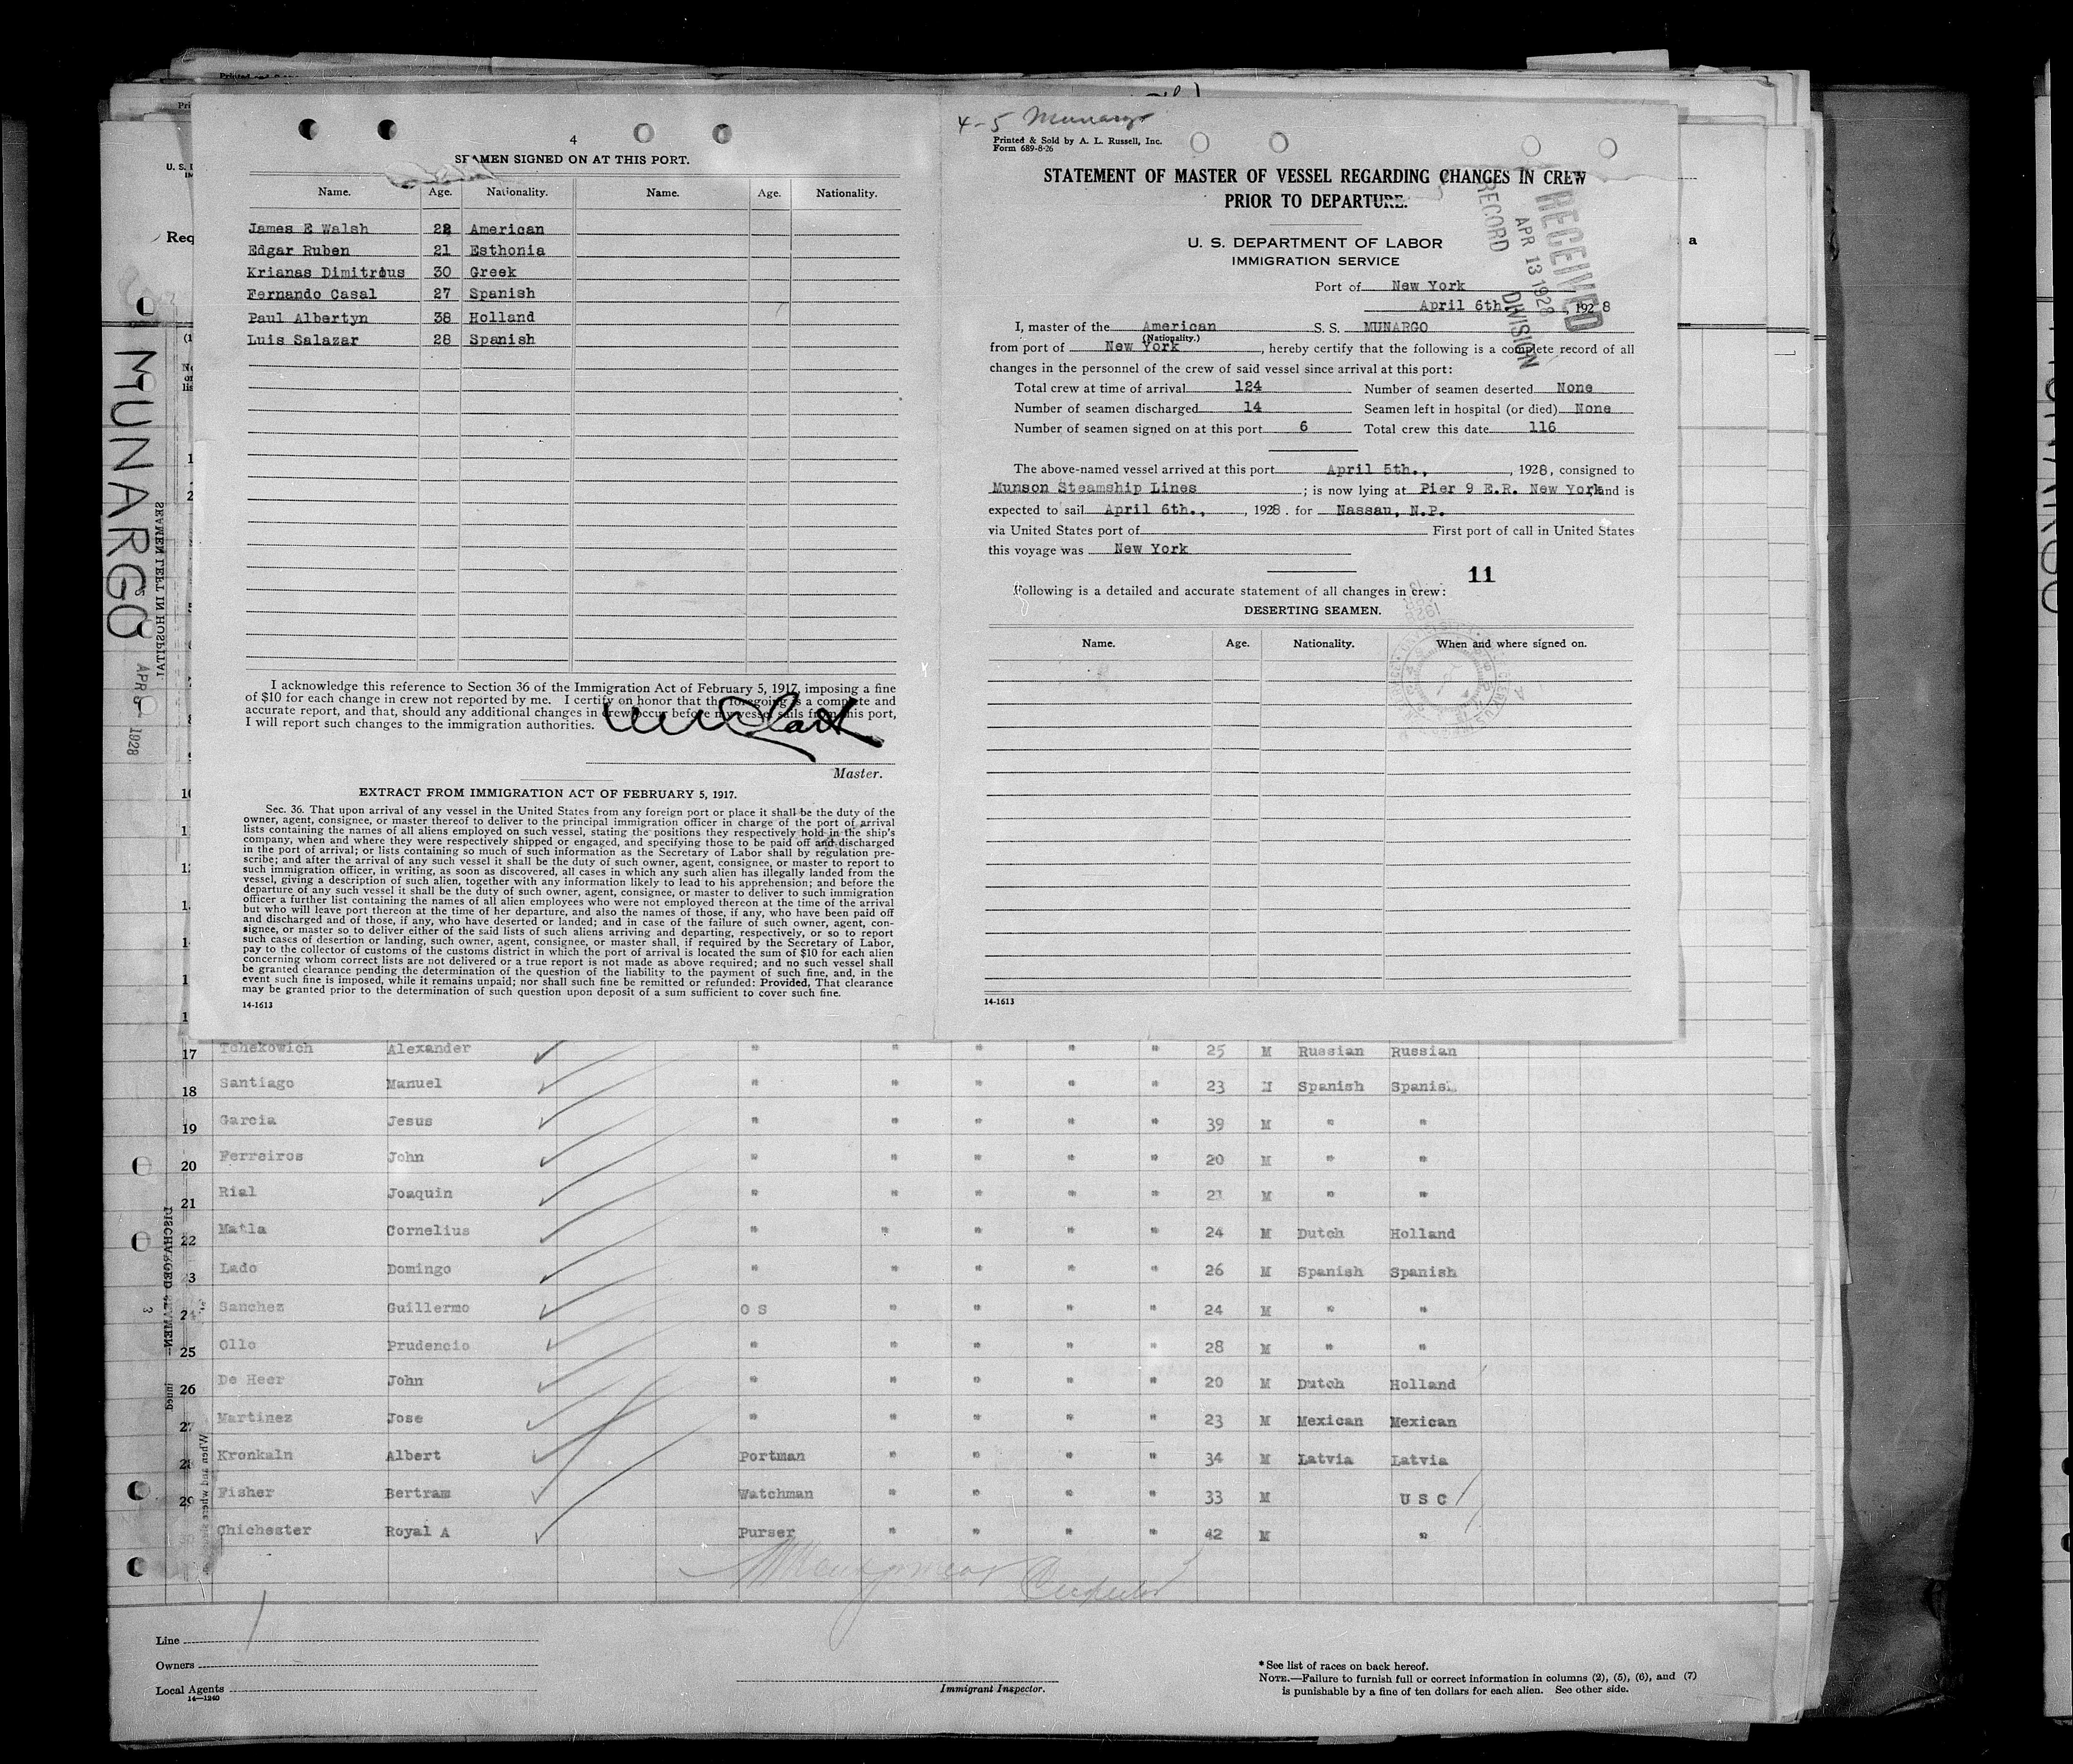 4
SEAMEN SIGNED ON AT THIS PORT.
Name. Age. Nationality. Name. Age. Nationality.
James E Walsh 28 American
Edgar Ruben 21 Esthonia
Krianas Dimitrous 30 Greek
Fernando Casal 27 Spanish
Paul Albertyn 38 Holland
Luis Salazar 28 Spanish
I acknowledge this reference to Section 36 of the Immigration Act of February 5, 1917, imposing a fine
of $10 for each change in crew not reported by me. I certify on honor that the foregoing is a complete and
accurate report, and that, should any additional changes in crew occur before my vessel sails from this port,
I will report such changes to the immigration authorities.
Master.
EXTRACT FROM IMMIGRATION ACT OF FEBRUARY 5, 1917.
Sec. 36. That upon arrival of any vessel in the United States from any foreign port or place it shall be the duty of the
owner, agent, consignee, or master thereof to deliver to the principal immigration officer in charge of the port of arrival
lists containing the names of all aliens employed on such vessel, stating the positions they respectively hold in the ship's
company, when and where they were respectively shipped or engaged, and specifying those to be paid off and discharged
in the port of arrival; or lists containing so much of such information as the Secretary of Labor shall by regulation pre-
scribe; and after the arrival of any such vessel it shall be the duty of such owner, agent, consignee, or master to report to
such immigration officer, in writing, as soon as discovered, all cases in which any such alien has illegally landed from the
vessel, giving a description of such alien, together with any information likely to lead to his apprehension; and before the
departure of any such vessel it shall be the duty of such owner, agent, consignee, or master to deliver to such immigration
officer a further list containing the names of all alien employees who were not employed thereon at the time of the arrival
but who will leave port thereon at the time of her departure, and also the names of those, if any, who have been paid off
and discharged and of those, if any, who have deserted or landed; and in case of the failure of such owner, agent, con-
signee, or master so to deliver either of the said lists of such aliens arriving and departing, respectively, or so to report
such cases of desertion or landing, such owner, agent, consignee, or master shall, if required by the Secretary of Labor,
pay to the collector of customs of the customs district in which the port of arrival is located the sum of $10 for each alien
concerning whom correct lists are not delivered or a true report is not made as above required; and no such vessel shall
be granted clearance pending the determination of the question of the liability to the payment of such fine, and, in the
event such fine is imposed, while it remains unpaid; nor shall such fine be remitted or refunded: Provided, That clearance
may be granted prior to the determination of such question upon deposit of a sum sufficient to cover such fine.
14-1613
4-5 Munargo
Printed & Sold by A. L. Russell, Inc.
Form 689-8-26
STATEMENT OF MASTER OF VESSEL REGARDING CHANGES IN CREW
PRIOR TO DEPARTURE.
RECEIVED
APR 13 1928
RECORD DIVISION
U. S. DEPARTMENT OF LABOR
IMMIGRATION SERVICE
Port of New York
April 6th, 1928
I, master of the American S. S. MUNARGO
(Nationality.)
from port of New York, hereby certify that the following is a complete record of all
changes in the personnel of the crew of said vessel since arrival at this port:
Total crew at time of arrival 124 Number of seamen deserted None
Number of seamen discharged 14 Seamen left in hospital (or died) None
Number of seamen signed on at this port 6 Total crew this date 116
The above-named vessel arrived at this port April 5th., 1928, consigned to
Munson Steamship Lines; is now lying at Pier 9 E.R. New York, and is
expected to sail April 6th., 1928. for Nassau, N.P.
via United States port of First port of call in United States
this voyage was New York
11
Following is a detailed and accurate statement of all changes in crew:
DESERTING SEAMEN.
Name. Age. Nationality. When and where signed on.
14-1613
MUNARGO
APR 1928
SEAMEN LEFT IN HOSPITAL
DISCHARGED SEAMEN
3
17 Tchekowich Alexander " " " " " 25 M Russian Russian
18 Santiago Manuel " " " " " 23 M Spanish Spanish
19 Garcia Jesus " " " " " 39 M " "
20 Ferreiros John " " " " " 20 M " "
21 Rial Joaquin " " " " " 21 M " "
22 Matla Cornelius " " " " " 24 M Dutch Holland
23 Lado Domingo " " " " " 26 M Spanish Spanish
24 Sanchez Guillermo O S " " " " 24 M " "
25 Ollo Prudencio " " " " " 28 M " "
26 De Heer John " " " " " 20 M Dutch Holland
27 Martinez Jose " " " " " 23 M Mexican Mexican
28 Kronkaln Albert Portman " " " " 34 M Latvia Latvia
29 Fisher Bertram Watchman " " " " 33 M U S C
Chichester Royal A Purser " " " " 42 M "
Line
Owners
Local Agents
14—1240
Immigrant Inspector.
* See list of races on back hereof.
NOTE.—Failure to furnish full or correct information in columns (2), (5), (6), and (7)
is punishable by a fine of ten dollars for each alien. See other side.